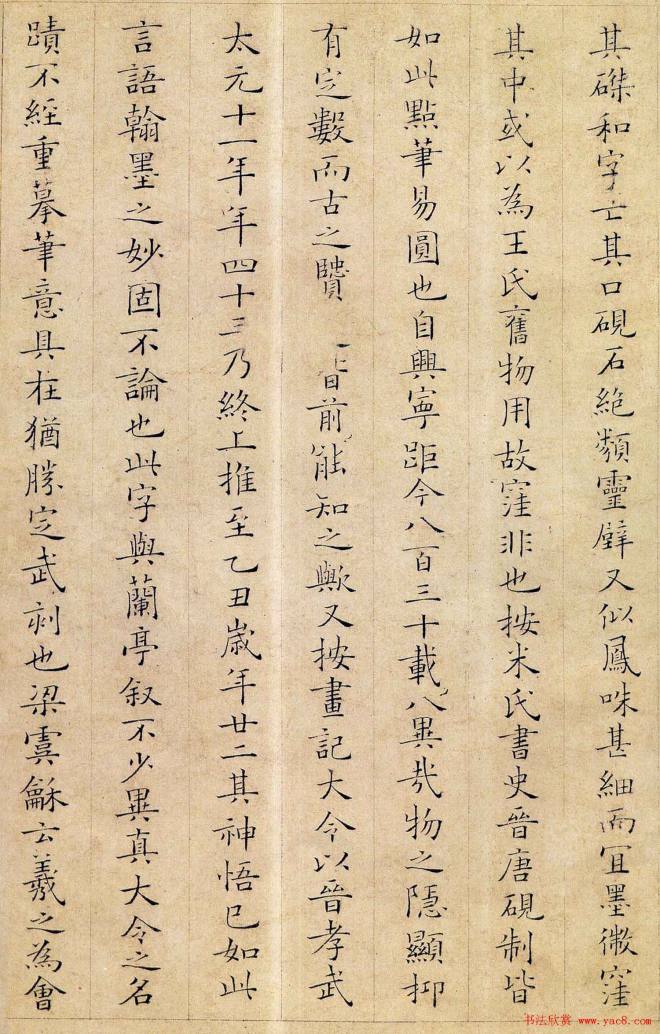 其磔和字亡其口硯石絶類靈璧又似鳳咮甚細而宜墨微窪
其中或以為王氏舊物用故窪非也按米氏書史晉唐硯制皆
如此點筆易圓也自興寧距今八百三十載八異哉物之隱顯抑
有定數而古之賢前能知之歟又按畫記大令以晉孝武
太元十一年年四十三乃終上推至乙丑歲年廿二其神悟已如此
言語翰墨之妙固不論也此字與蘭亭叙不少異真大令之名
蹟不經重摹筆意具在猶勝定武刻也梁虞龢云羲之為會
书法欣赏 www.yac8.com